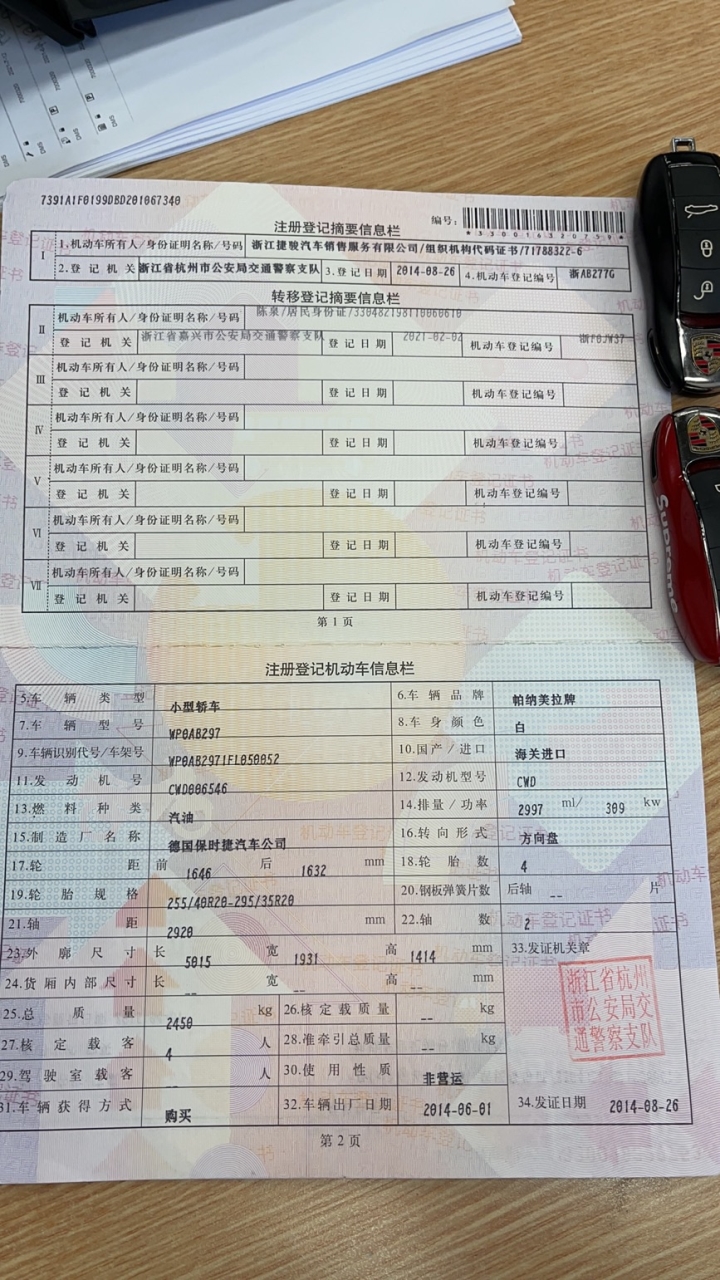 7391A1F0199DBD201067340
注册登记摘要信息栏
编号:
*330016320739*
I
1.机动车所有人/身份证明名称/号码 浙江捷骏汽车销售服务有限公司/组织机构代码证书/71788322-6
2.登记机关 浙江省杭州市公安局交通警察支队 3.登记日期 2014-08-26 4.机动车登记编号 浙AB277G
转移登记摘要信息栏
II
机动车所有人/身份证明名称/号码 陈泉/居民身份证/330482198110060610
登记机关 浙江省嘉兴市公安局交通警察支队 登记日期 2021-02-02 机动车登记编号 浙F0JW37
III
机动车所有人/身份证明名称/号码
登记机关 登记日期 机动车登记编号
IV
机动车所有人/身份证明名称/号码
登记机关 登记日期 机动车登记编号
V
机动车所有人/身份证明名称/号码
登记机关 登记日期 机动车登记编号
VI
机动车所有人/身份证明名称/号码
登记机关 登记日期 机动车登记编号
VII
机动车所有人/身份证明名称/号码
登记机关 登记日期 机动车登记编号
第1页
注册登记机动车信息栏
5.车辆类型 小型轿车 6.车辆品牌 帕纳美拉牌
7.车辆型号 WP0AB297 8.车身颜色 白
9.车辆识别代号/车架号 WP0AB2971FL050052 10.国产/进口 海关进口
11.发动机号 CWD006546 12.发动机型号 CWD
13.燃料种类 汽油 14.排量/功率 2997 ml/ 309 kw
15.制造厂名称 德国保时捷汽车公司 16.转向形式 方向盘
17.轮距 前 1646 后 1632 mm 18.轮胎数 4
19.轮胎规格 255/40R20-295/35R20 20.钢板弹簧片数 后轴 -- 片
21.轴距 2920 mm 22.轴数 2
23.外廓尺寸 长 5015 宽 1931 高 1414 mm 33.发证机关章
24.货厢内部尺寸 长 -- 宽 -- 高 -- mm
浙江省杭州
市公安局交
通警察支队
25.总质量 2450 kg 26.核定载质量 -- kg
27.核定载客 4 人 28.准牵引总质量 -- kg
29.驾驶室载客 -- 人 30.使用性质 非营运
31.车辆获得方式 购买 32.车辆出厂日期 2014-06-01 34.发证日期 2014-08-26
第2页
Supreme